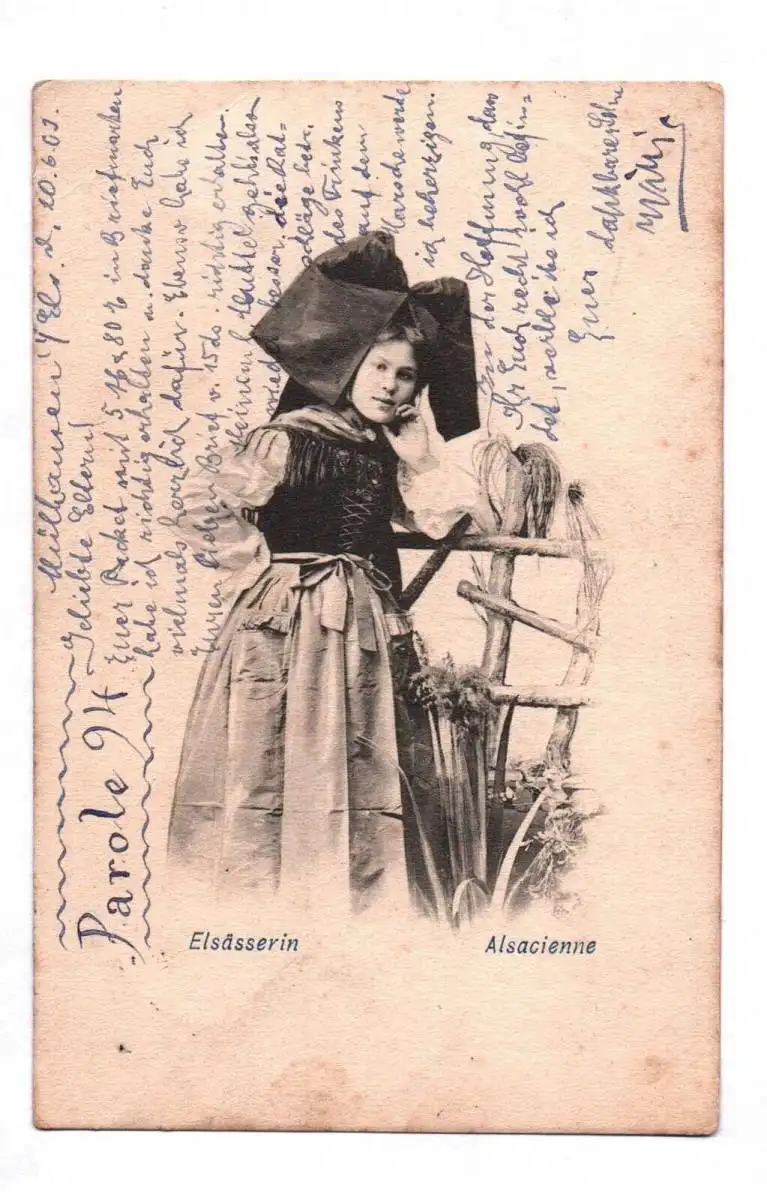 Mülhausen i/ Els. d. 20.6.03.
Geliebte Eltern!
Euer Packet mit 5 M 80 in Briefmarken
habe ich richtig erhalten u. danke Euch
vielmals herzlich dafür. Ebenso habe ich
Euren lieben Brief v. 15 ds. richtig erhalten.
Meinem geht es also
wieder besser. die Rat-
schläge betr.
des Trinkens
auf dem
Marsche werde
ich beherzigen.
In der Hoffnung, dass
Ihr Euch recht wohl befin-
det, verbleibe ich
Euer dankbarer Sohn
Willi
Parole 94
Elsässerin
Alsacienne